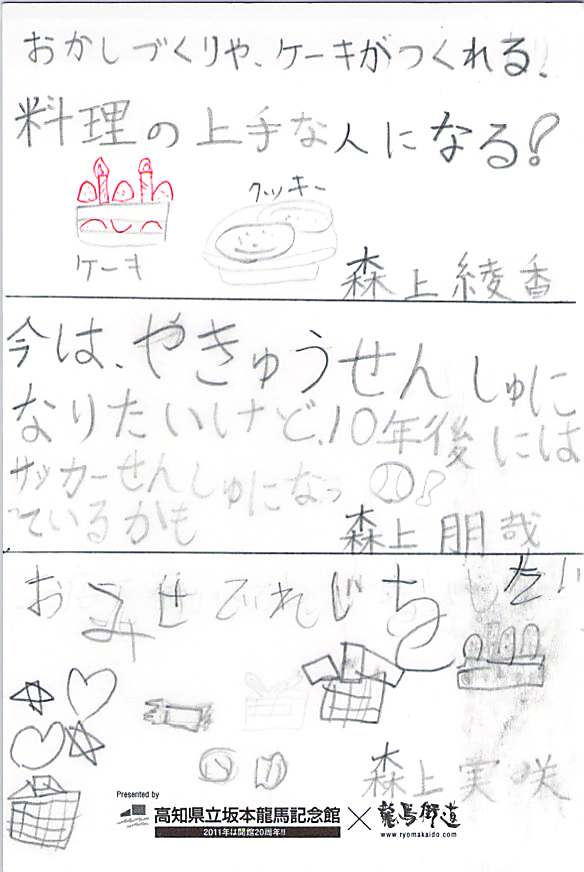 おかしづくりや、ケーキがつくれる、
料理の上手な人になる!
クッキー
ケーキ
森上綾香
今は、やきゅうせんしゅに
なりたいけど、10年後には
サッカーせんしゅになっ
ているかも
森上朋哉
おみせでれじを
したい
森上実咲
Presented by
高知県立坂本龍馬記念館
2011年は開館20周年!!
×
龍馬街道
www.ryomakaido.com